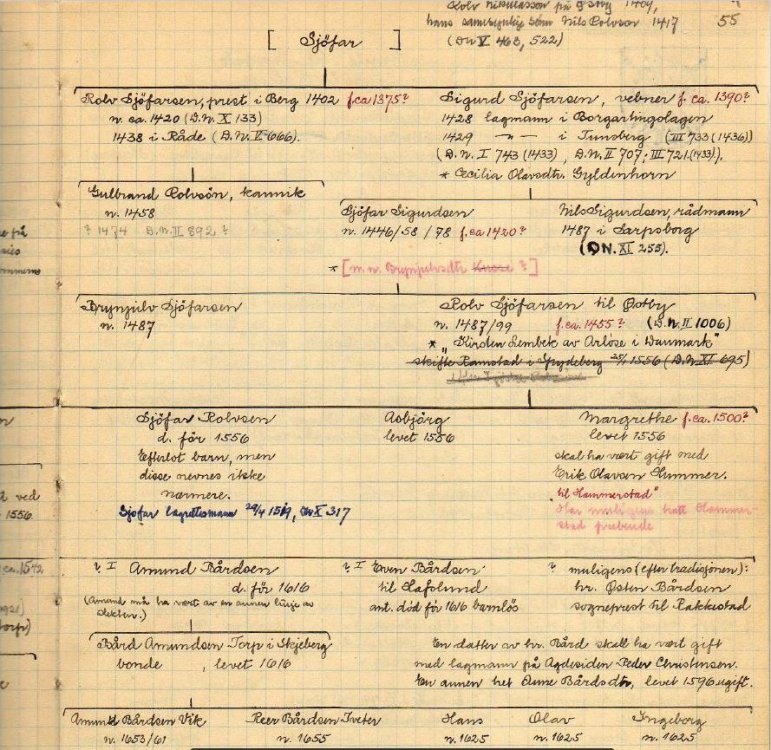 Rolv Nikulasson på 1409,
hans samsynlig sönn Nils Rolvson 1417 55
[ Sjöfar ] (DN V 463, 522)
Rolv Sjöfarsen, prest i Berg 1402 f.ca 1375?
n. sa. 1420 (D.N. X 133)
1438 i Råde (D.N. V 666).
Sigurd Sjöfarsen, vebner f. ca. 1390?
1428 lagmann i Borgartingslagen
1429 — " — i Tunsberg (III 733 (1436))
(D.N. I 743 (1433), D.N. II 707; III 721 (1433)).
* Cecilia Olavsdtr. Gyldenhorn
Gulbrand Rolvsön, kannik
n. 1458
? 1474 D.N. II 892 ?
Sjöfar Sigurdsen
n. 1446/58 /78 f.ca 1420?
Nils Sigurdsen, rådmann
1487 i Sarpsborg
(DN. XI 255).
* [m. n. Brynjulvsdtr Kruse ?]
Brynjulv Sjöfarsen
n. 1487
Rolv Sjöfarsen til Østby
n. 1487/99 f.ca. 1455? (D.N. II 1006)
* "Kirsten Lembek av Arlöse i Danmark"
skifte Ramstad i Spydeberg 25/1 1556 (D.N. XI 695)
Sjöfar Rolvsen
d. för 1556
Efterlot barn, men
disse nevnes ikke
nærmere.
Sjöfar lagrettesmann 29/4 1519, DN X 317
Asbjörg
levet 1556
Margrethe f.ca. 1500?
levet 1556
skal ha vært gift med
Erik Olavsen Hummer.
"til Hammerstad"
Har muligens hatt Hammer-
stad prebende
d ved
1556.
ca. 1572
torp)
? I Amund Bårdsen
d. för 1616
(Amund må ha vært av en annen linje av
slekten.)
? I Even Bårdsen
til Hafslund
ant. död för 1616 barnlös
? muligens (efter tradisjonen):
hr. Østen Bårdsen
sogneprest til Rakkestad
Bård Amundsen Torp i Skjeberg
bonde , levet 1616
En datter av hr. Bård skal ha vært gift
med lagmann på Agdesiden Peder Christensen.
En annen het Anne Bårdsdtr, levet 1596 ugift.
Amund Bårdsen Vik
n. 1653/61
Peer Bårdsen Tveter
n. 1655
Hans
n. 1625
Olav
n. 1625
Ingeborg
n. 1625